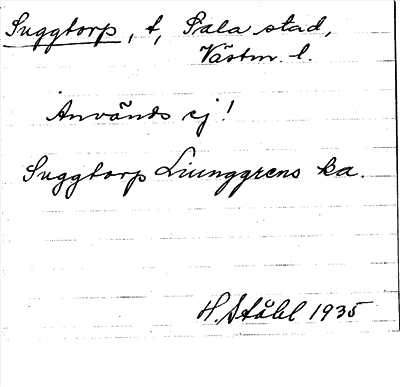 Suggtorp, t, Sala stad,
Västm. l.
Används ej!
Suggtorp Liunggrens ka.
H. Ståhl 1935